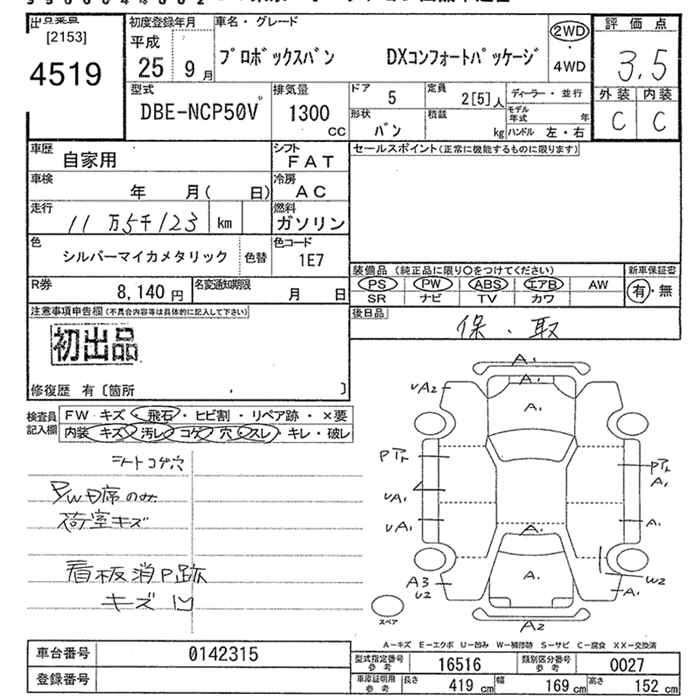 出品票
[2153]
4519
初度登録年月
平成
25 9月
車名・グレード
プロボックスバン DXコンフォートパッケージ
2WD
・
4WD
評価点
3.5
外装 内装
C C
型式
DBE-NCP50V
排気量
1300
CC
ドア
5
定員
2[5]人
ディーラー・並行
形状
バン
積載
kg
モデル年式 年
ハンドル 左・右
車歴
自家用
シフト
FAT
セールスポイント(正常に機能するものに限ります)
車検
年 月( 日)
冷房
AC
走行
11万5千123 km
燃料
ガソリン
色
シルバーマイカメタリック
色替
色コード
1E7
装備品 (純正品に限り○をつけてください)
新車保証書
PS PW ABS エアB AW
SR ナビ TV カワ
有・無
R券
8,140円
名変通知期限
月 日
後日品
保・取
注意事項申告欄(不具合内容等は具体的に記入して下さい)
初出品
修復歴 有〔箇所 ・ 〕
検査員記入欄
FW キズ・飛石・ヒビ割・リペア跡・×要
内装 キズ 汚レ コゲ 穴 スレ・キレ・破レ
シートコゲ穴
PwD席のみ
荷室キズ
看板消P跡
キズ凹
A1
UA2
A1
A1
Pアト
Pアト
A1
UA1
UA1
A1
A1
A3
U2
A1
W2
A1
A2
スペア
A-キズ E-エクボ U-凹み W-補修跡 S-サビ C-腐食 XX-交換済
車台番号
0142315
登録番号
型式指定番号
参考
16516
類別区分番号
参考
0027
車庫証明用
参考
長さ
419 cm
幅
169 cm
高さ
152 cm